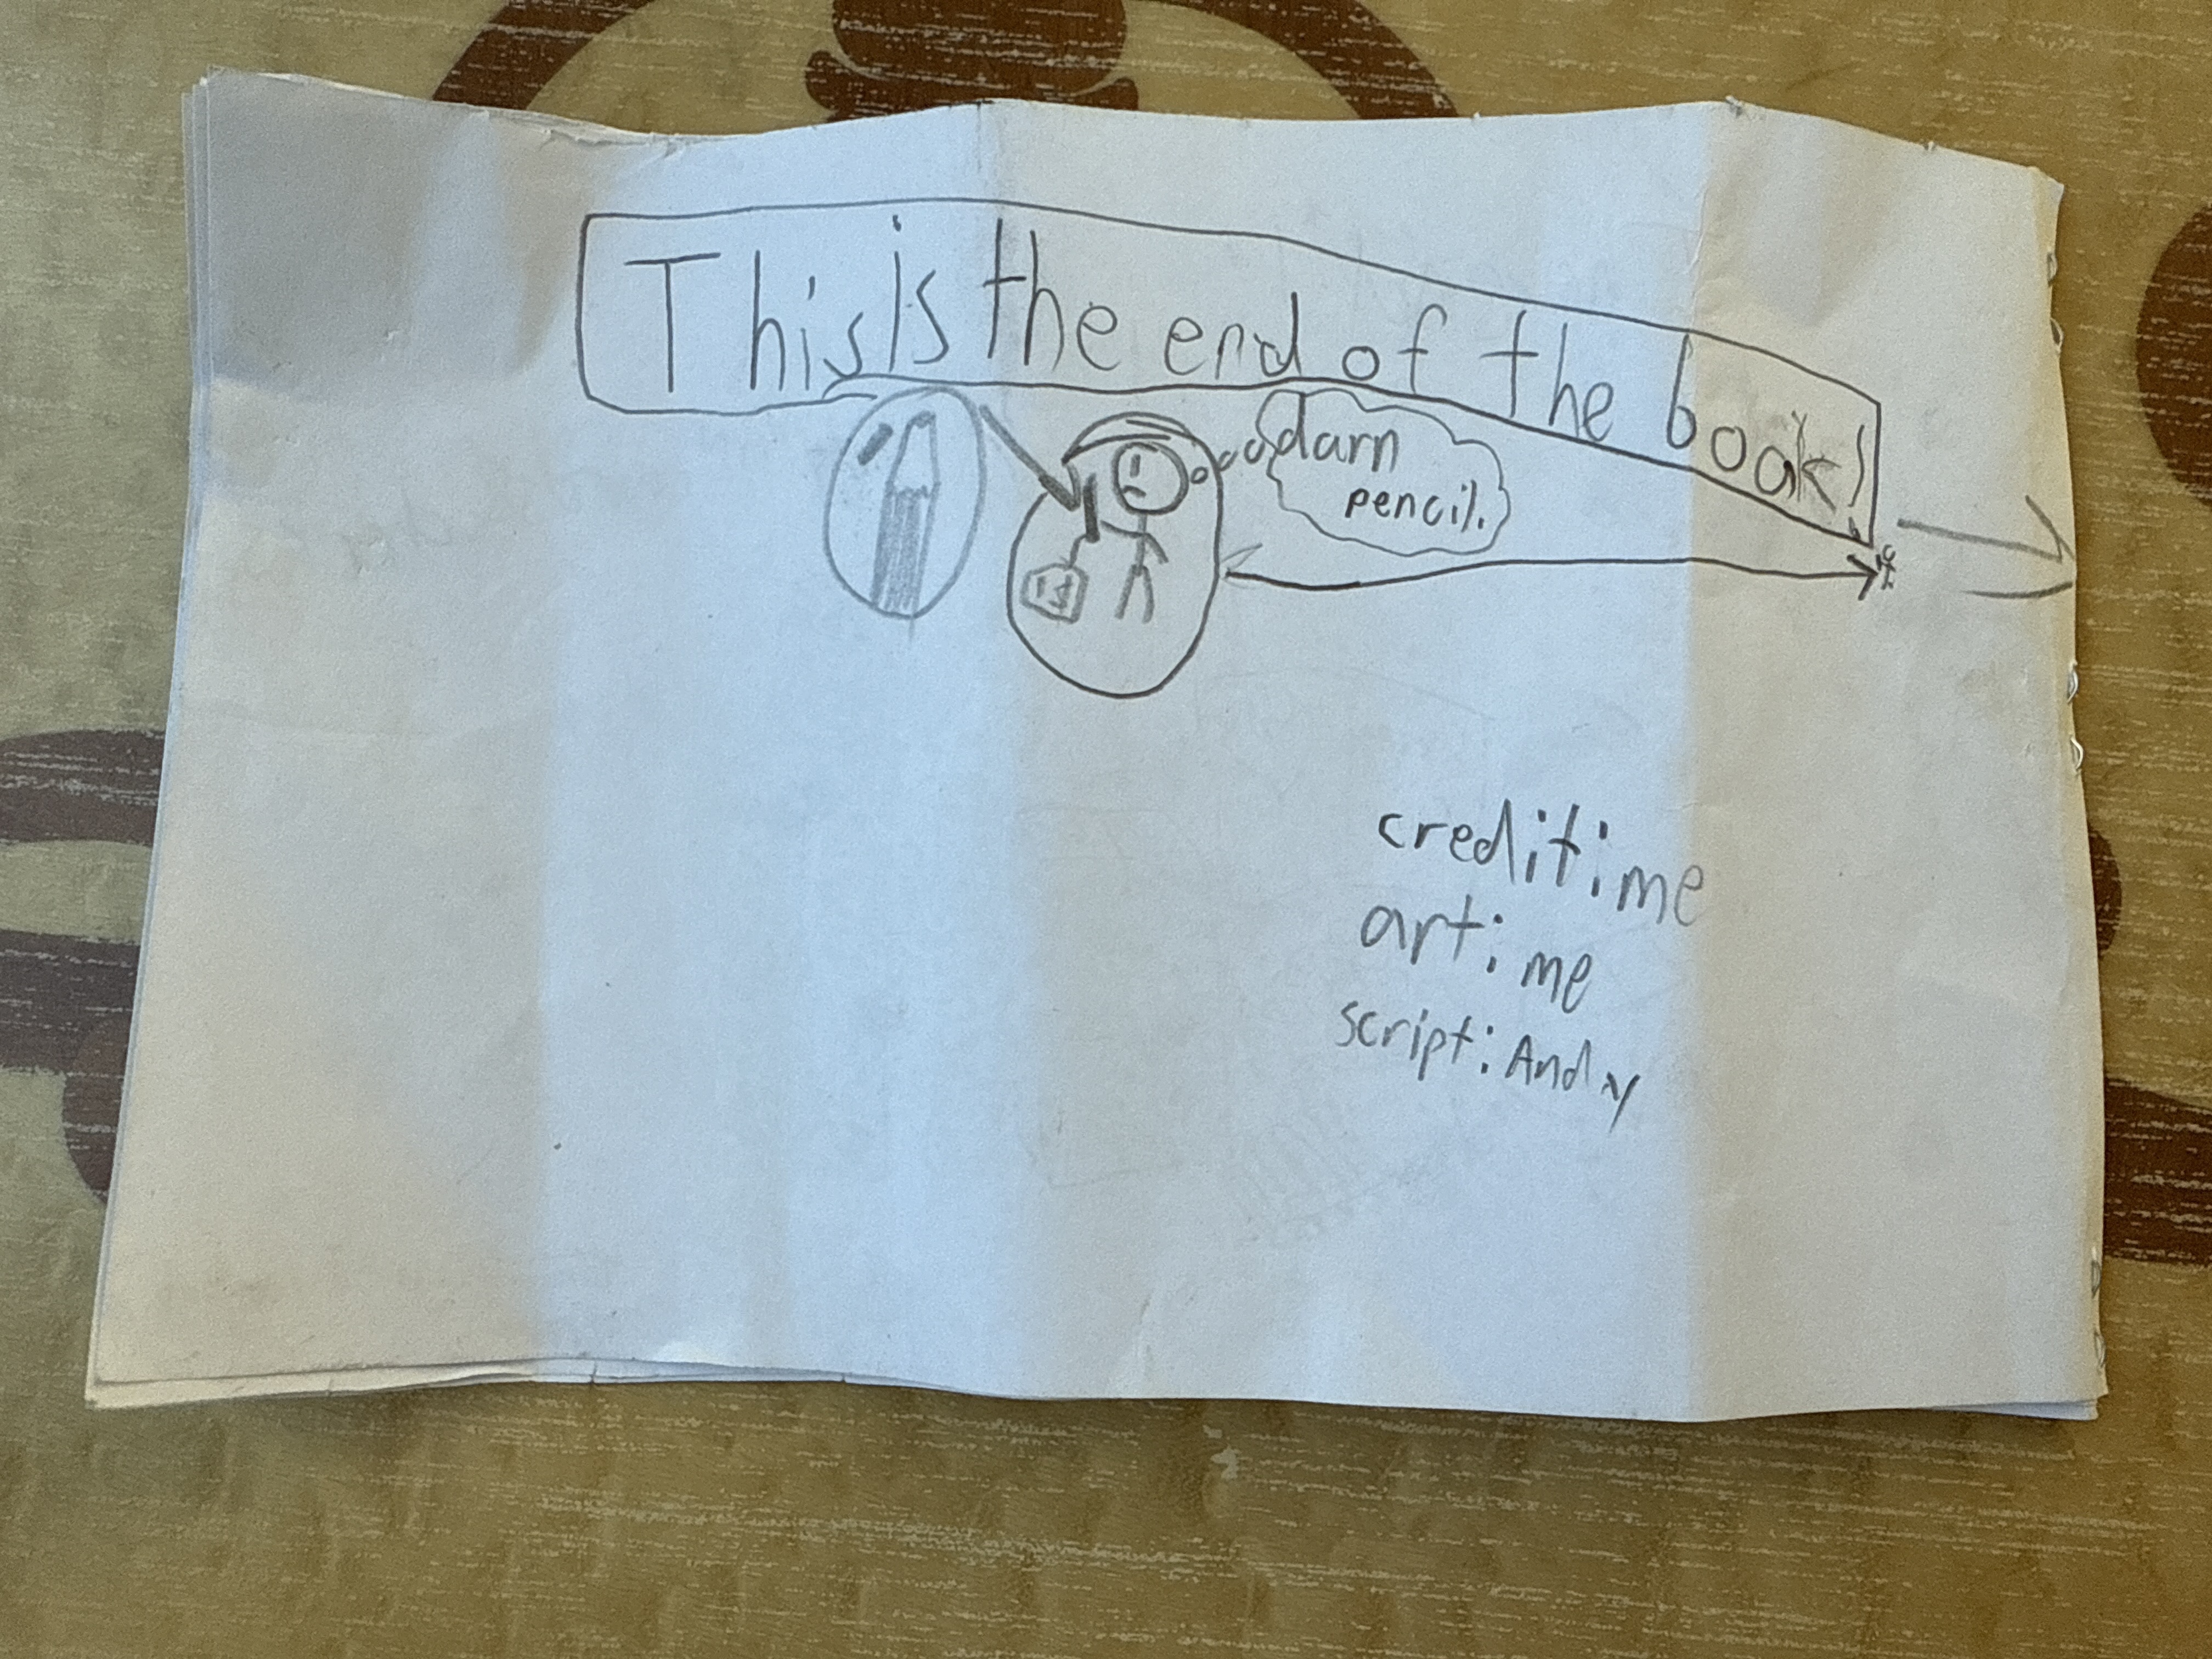 This is the end of the book!
darn
pencil.
credit: me
art: me
script: Andy